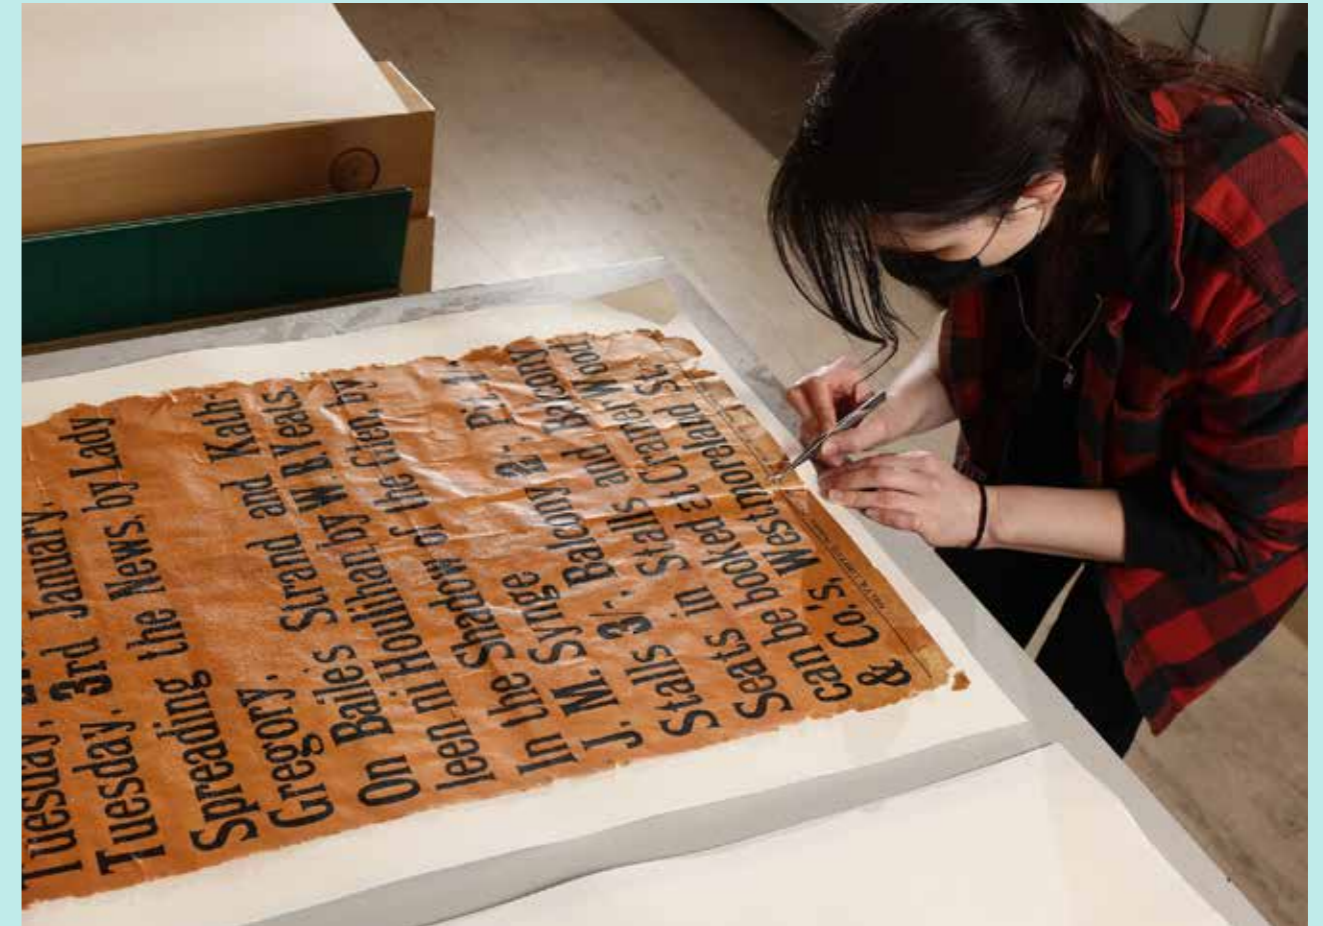 Tuesday,
Tuesday, 3rd January.
Spreading the News, by Lady
Gregory.
On Baile's Strand and Kath-
leen ni Houlihan by W.B.Yeats.
In the Shadow of the Glen, by
J. M. Synge
Stalls 3/-. Balcony 2/- Pit
Seats in Stalls and Balcony
can be booked at Cramer Wood
& Co.'s, Westmoreland St.